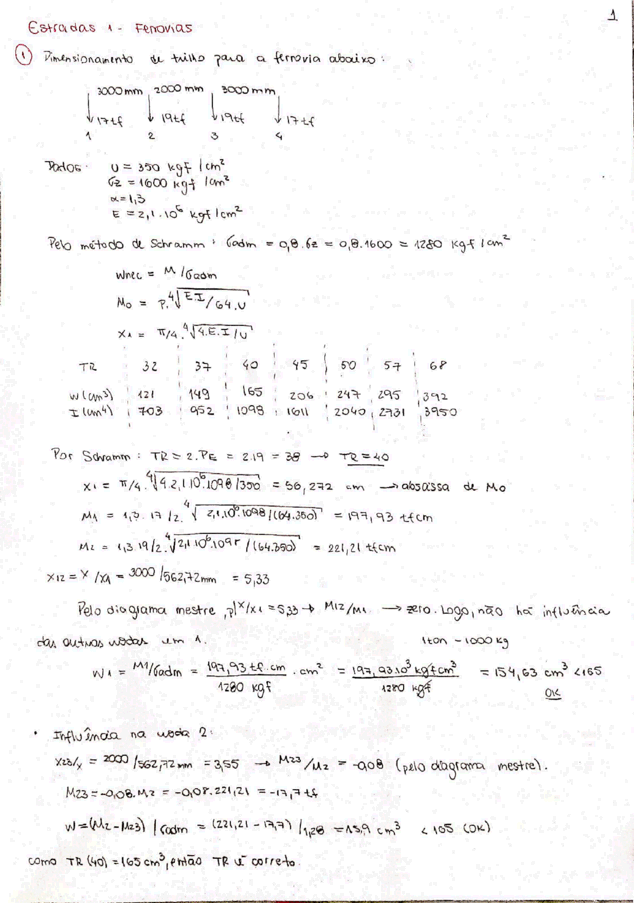 1
Estradas 1 - Ferrovias
① Dimensionamento de trilho para a ferrovia abaixo:
3000mm 2000 mm 3000 mm
17tf 19tf 19tf 17tf
1 2 3 4
Dados: U = 350 kgf/cm²
σz = 1600 kgf/cm²
α = 1,3
E = 2,1.10⁶ kgf/cm²
Pelo método de Schramm: σadm = 0,8.σz = 0,8.1600 = 1280 kgf/cm²
Wnec = M/σadm
M₀ = P.⁴√EI/64.U
X₁ = π/4.⁴√4.E.I/U
TR 32 37 40 45 50 57 68
W (cm³) 121 149 165 206 247 295 392
I (cm⁴) 703 952 1098 1611 2040 2731 3950
Por Schramm: TR = 2.PE = 2.19 = 38 → TR = 40
X₁ = π/4.⁴√4.2,1.10⁶.1098/350 = 56,272 cm → abssissa de M₀
M₁ = 1,3.17/2.⁴√2,1.10⁶.1098/(64.350) = 197,93 tfcm
M₂ = 1,3.19/2.⁴√2,1.10⁶.1098/(64.350) = 221,21 tfcm
X12 = X/X₁ = 3000/562,72mm = 5,33
Pelo diagrama mestre, p/ X/X₁ = 5,33 → M12/M₁ → zero. Logo, não há influência
das outras rodas em 1.
1ton - 1000 kg
W₁ = M₁/σadm = 197,93 tf.cm/1280 kgf . cm² = 197,93.10³ kgfcm³/1280 kgf = 154,63 cm³ < 165
OK
• Influência na roda 2:
X23/X = 2000/562,72mm = 3,55 → M23/M₂ = -0,08 (pelo diagrama mestre).
M23 = -0,08.M₂ = -0,08.221,21 = -17,7 tf
W = (M₂ - M23)/σadm = (221,21 - 17,7)/1,28 = 159 cm³ < 165 (OK)
como TR (40) = 165 cm³, então TR é correto.